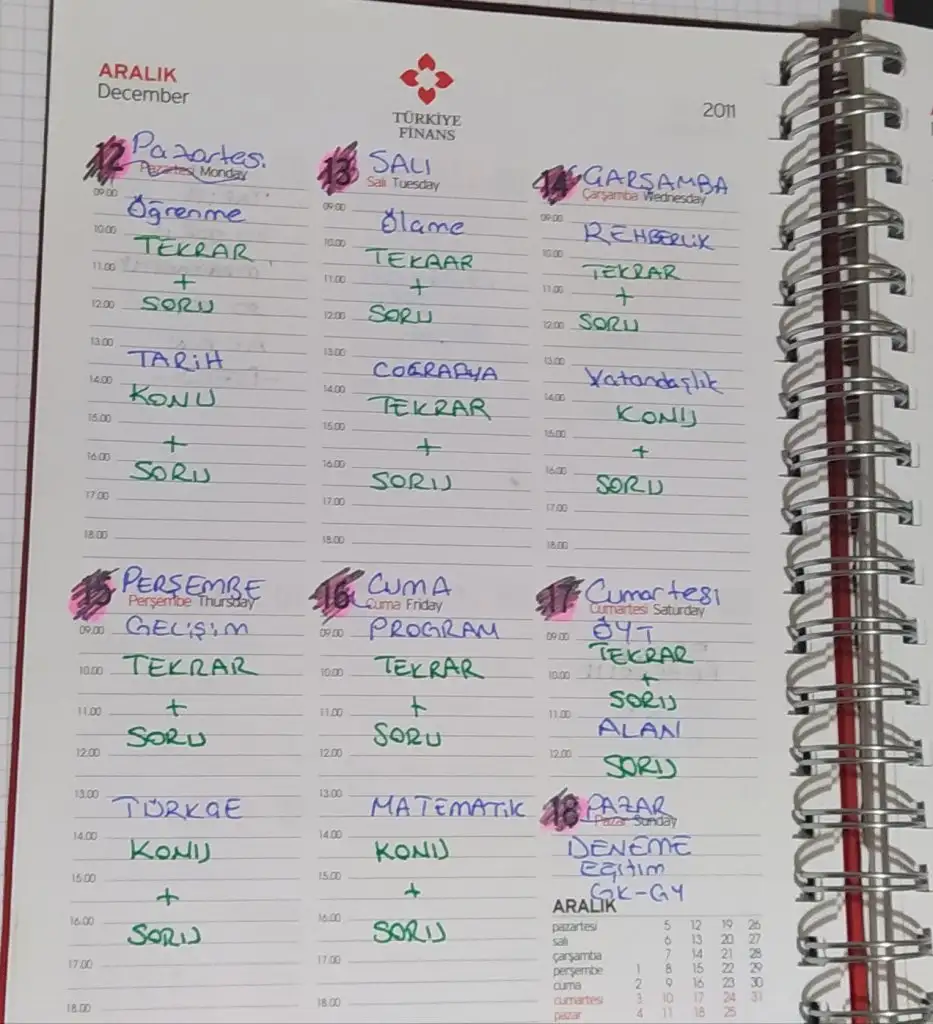 ARALIK
December
TÜRKİYE
FİNANS
2011
12 Pazartesi
Pazartesi Monday
09.00
Öğrenme
10.00
TEKRAR
11.00
+
12.00
SORU
13.00
TARİH
14.00
KONU
15.00
+
16.00
SORU
17.00
18.00
13 SALI
Salı Tuesday
09.00
Ölame
10.00
TEKRAR
11.00
+
12.00
SORU
13.00
COĞRAFYA
14.00
TEKRAR
15.00
+
16.00
SORU
17.00
18.00
14 ÇARŞAMBA
Çarşamba Wednesday
09.00
REHBERLİK
10.00
TEKRAR
11.00
+
12.00 SORU
13.00
Vatandaşlık
14.00
KONU
15.00
+
16.00
SORU
17.00
18.00
15 PERŞEMBE
Perşembe Thursday
09.00 GELİŞİM
10.00 TEKRAR
11.00 +
SORU
12.00
13.00
TÜRKÇE
14.00
KONU
15.00
+
16.00
SORU
17.00
18.00
16 CUMA
Cuma Friday
09.00 PROGRAM
10.00 TEKRAR
11.00 +
SORU
12.00
13.00
MATEMATİK
14.00
KONU
15.00
+
16.00
SORU
17.00
18.00
17 Cumartesi
Cumartesi Saturday
09.00 ÖYT
TEKRAR
10.00 +
SORU
11.00
ALAN
12.00
SORU
18 PAZAR
Pazar Sunday
DENEME
Eğitim
GK-GY
ARALIK
pazartesi 5 12 19 26
salı 6 13 20 27
çarşamba 7 14 21 28
perşembe 1 8 15 22 29
cuma 2 9 16 23 30
cumartesi 3 10 17 24 31
pazar 4 11 18 25